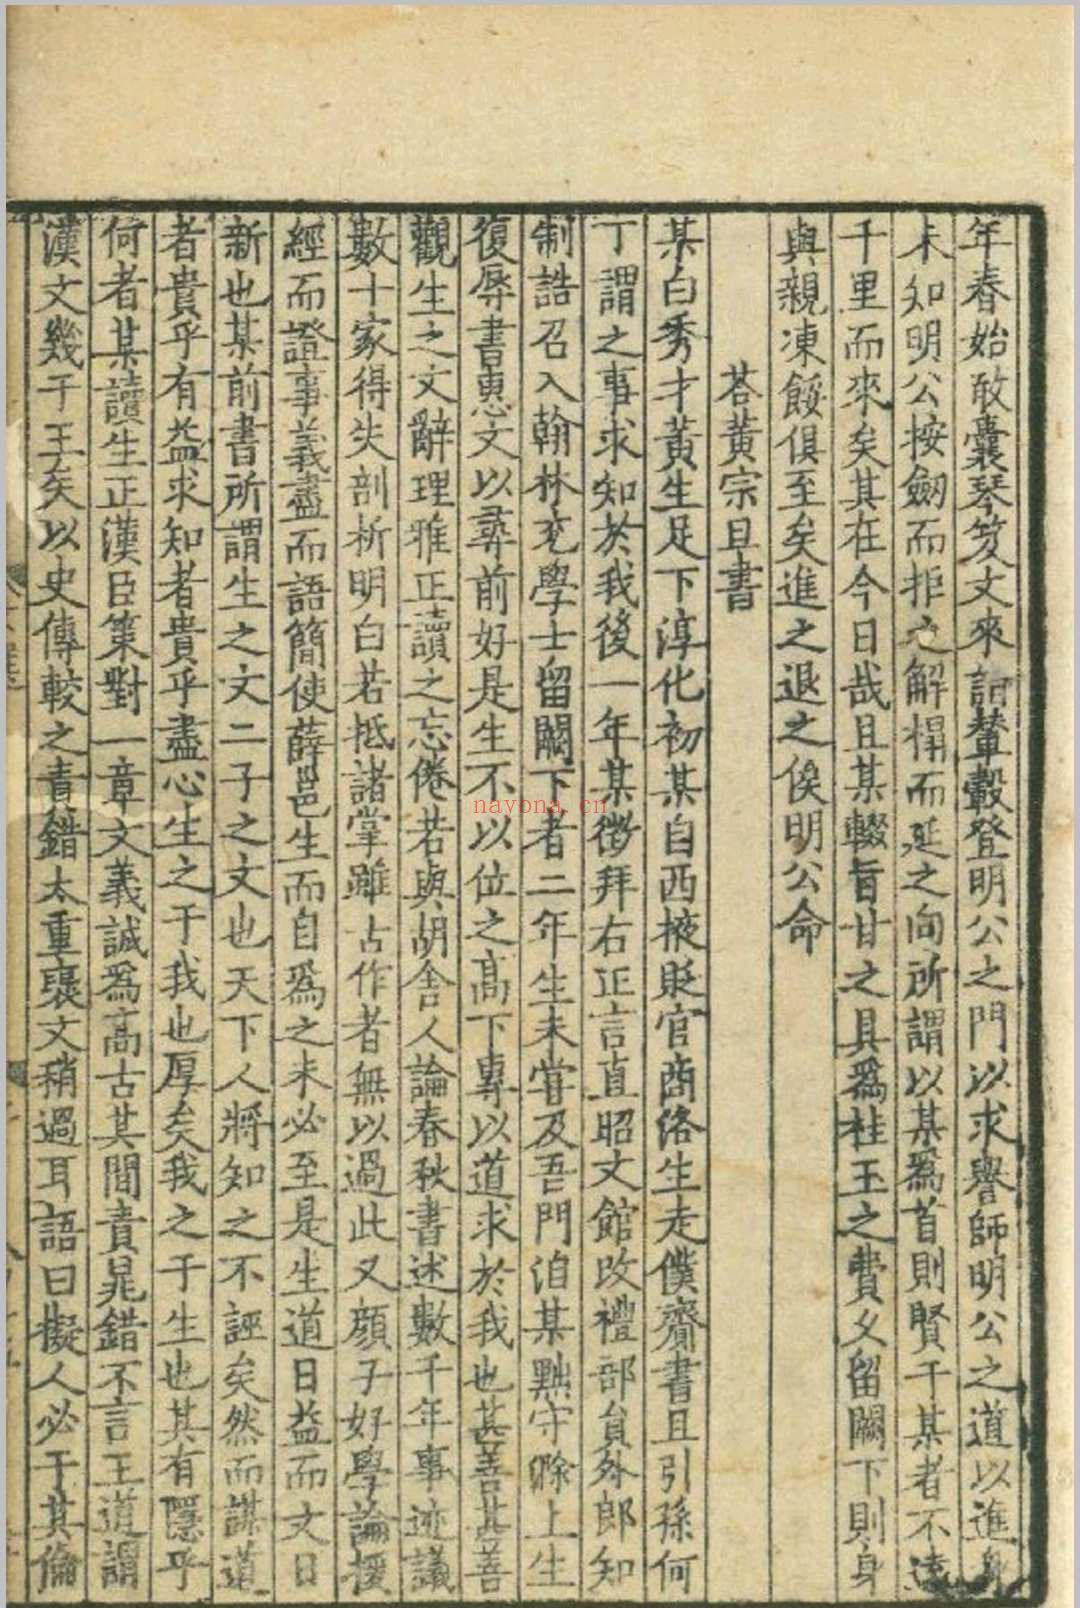 年春始敢囊琴笈文來詣輦轂登明公之門以求譽師明公之道以進身
未知明公按劒而拒之解榻而延之向所謂以某爲首則賢于某者不遠
千里而來矣其在今日哉且某輟旨甘之具爲桂玉之費久留闕下則身
與親凍餒俱至矣進之退之俟明公命
荅黃宗旦書
某白秀才黃生足下淳化初某自西掖貶官商洛生走僕齎書且引孫何
丁謂之事求知於我後一年某徵拜右正言直昭文館改禮部員外郎知
制誥召入翰林充學士留闕下者二年生未嘗及吾門洎某黜守滁上生
復辱書惠文以尋前好是生不以位之高下專以道求於我也甚善甚善
觀生之文辭理雅正讀之忘倦若與胡舍人論春秋書述數千年事迹議
數十家得失剖析明白若抵諸掌雖古作者無以過此又顔子好學論援
經而證事義盡而語簡使薛邕生而自爲之未必至是生道日益而文日
新也某前書所謂生之文二子之文也天下人將知之不誣矣然而謀道
者貴乎有益求知者貴乎盡心生之于我也厚矣我之于生也其有隱乎
何者某讀生正漢臣策對一章文義誠爲高古其間責晁錯不言王道謂
漢文幾于王矣以史傳較之責錯太重襃文稍過耳語曰擬人必于其倫
nayona.cn